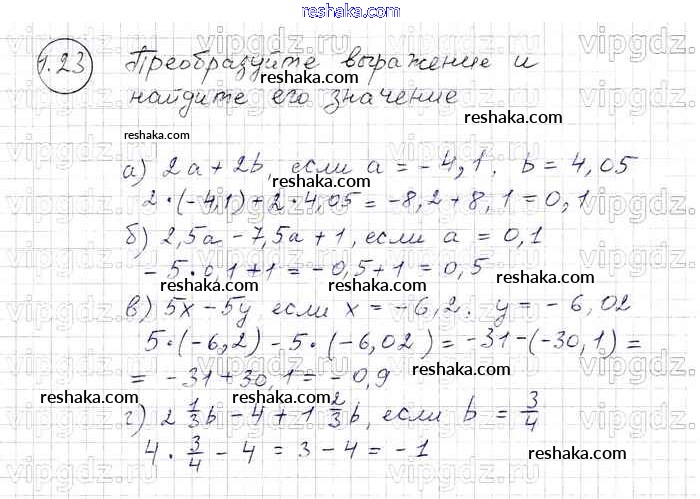 reshaka.com
1.23 Преобразуйте выражение и
reshaka.com
найдите его значение
reshaka.com
reshaka.com
а) 2a + 2b, если a = -4,1. b = 4,05
reshaka.com
2·(-4,1) + 2·4,05 = -8,2 + 8,1 = 0,1
reshaka.com
б) 2,5a - 7,5a + 1, если a = 0,1
-5·0,1+1 = -0,5+1 = 0,5
reshaka.com
reshaka.com
в) 5x - 5y, если x = -6,2. y = -6,02
reshaka.com
5·(-6,2) - 5·(-6,02) = -31-(-30,1) =
reshaka.com
= -31+30,1 = -0,9
reshaka.com
reshaka.com
г) 2 1/3 b - 4 + 1 2/3 b, если b = 3/4
reshaka.com
4 · 3/4 - 4 = 3 - 4 = -1
reshaka.com
vipgdz.com